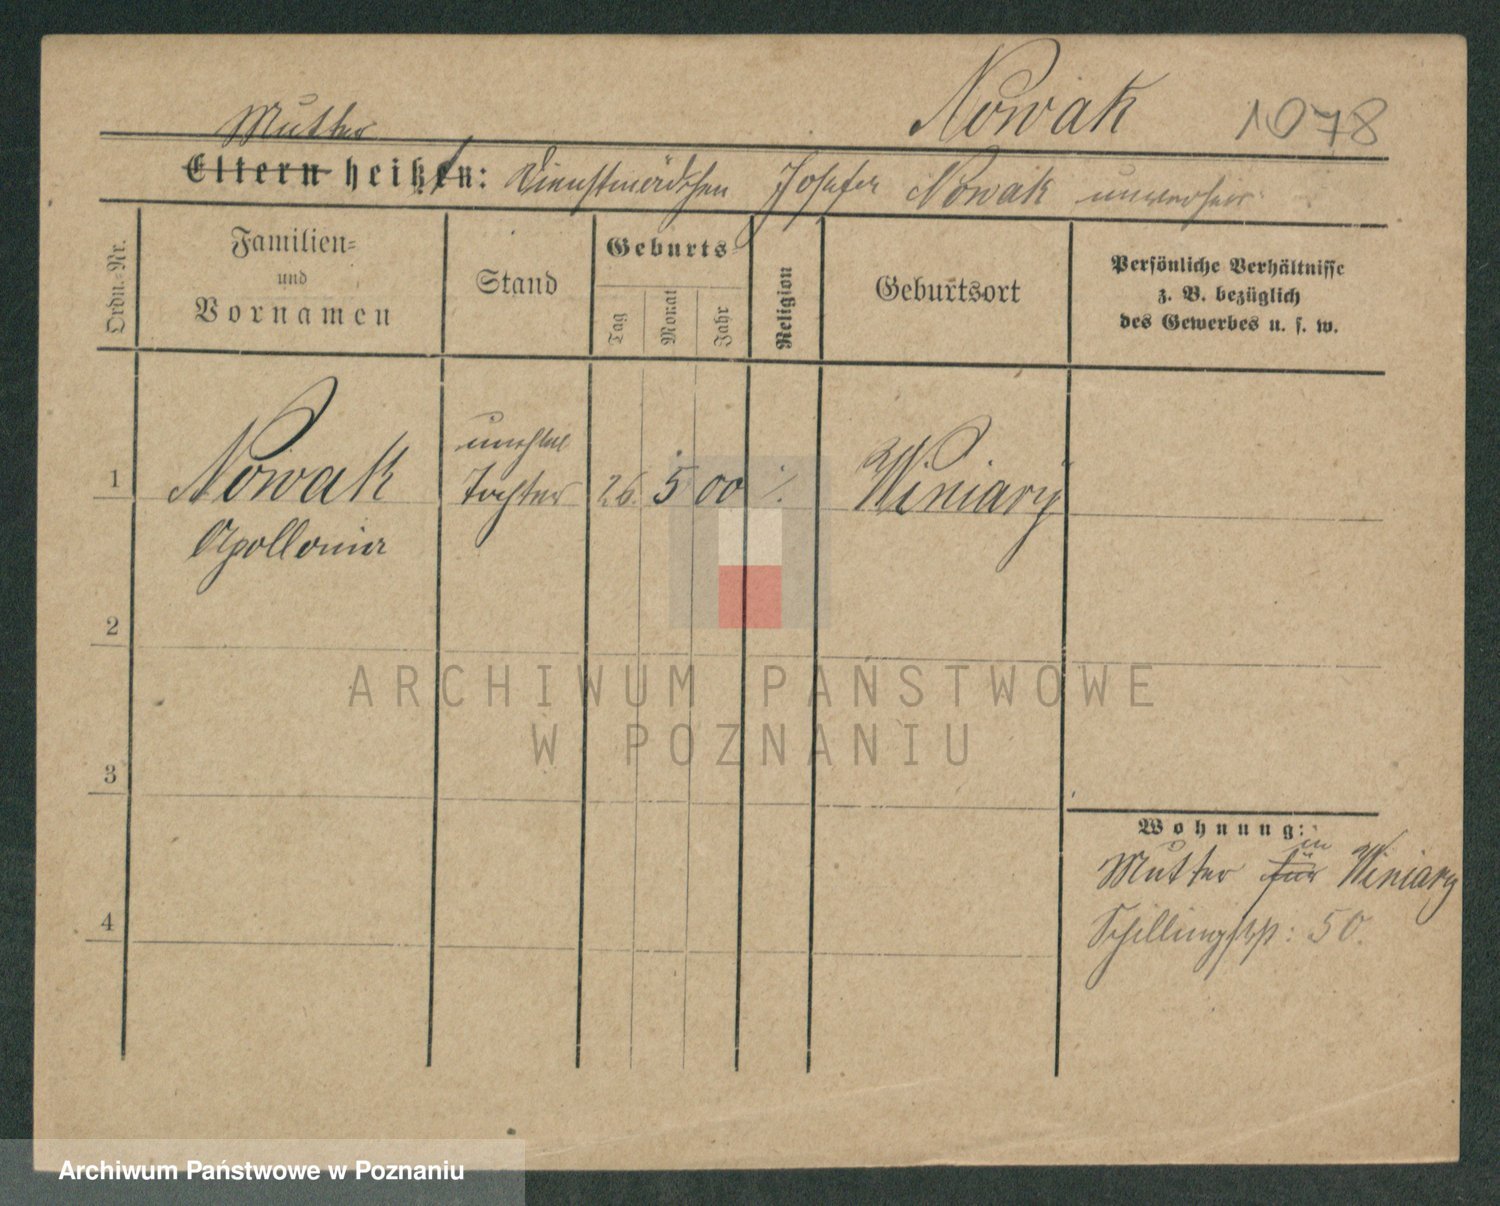 Nowak 1078
Mutter
Eltern heißen: Dienstmädchen Josefa Nowak unverheir:
Ordn.-Nr.
Familien-
und
Vornamen
Stand
Geburts-
Tag
Monat
Jahr
Religion
Geburtsort
Persönliche Verhältnisse
z. B. bezüglich
des Gewerbes u. s. w.
1 Nowak
Apollonia
unehel
Tochter
26. 5 00 ·/.
Winiary
2
3
4
Wohnung:
in
Mutter für Winiary
Schillingstr: 50.
ARCHIWUM PAŃSTWOWE
W POZNANIU
Archiwum Państwowe w Poznaniu